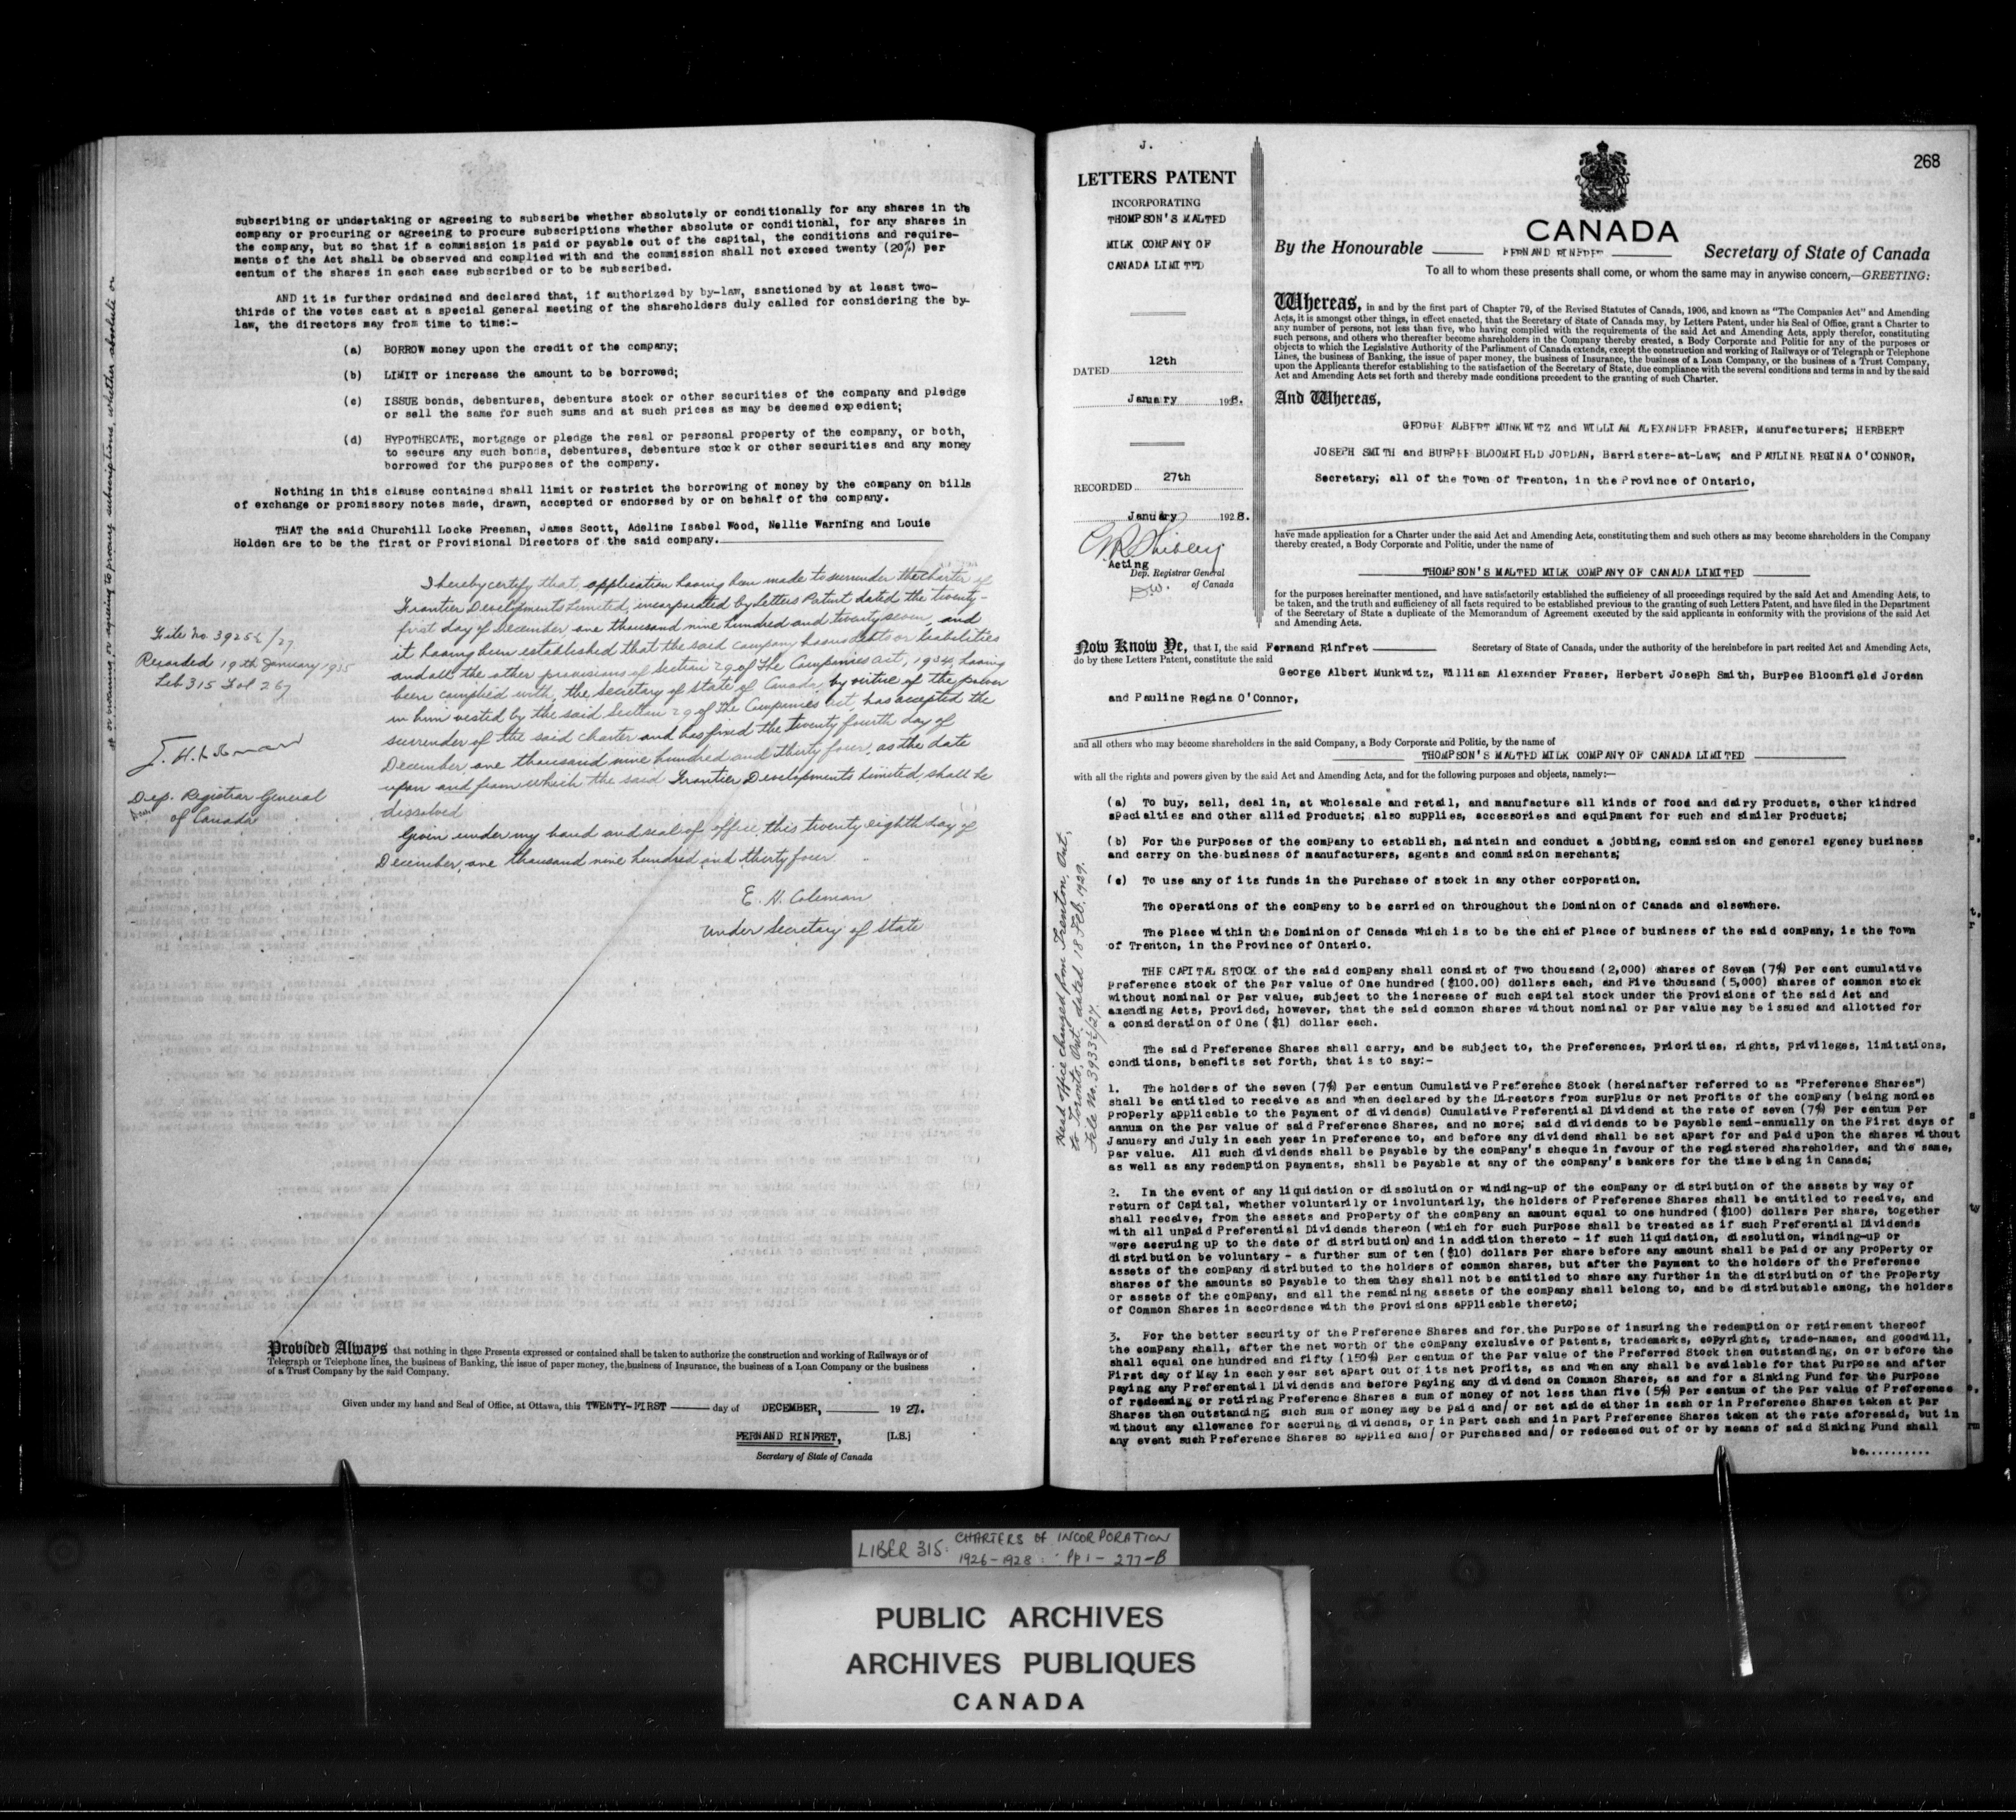 subscribing or undertaking or agreeing to subscribe whether absolutely or conditionally for any shares in the
company or procuring or agreeing to procure subscriptions whether absolute or conditional, for any shares in
the company, but so that if a commission is paid or payable out of the capital, the conditions and require-
ments of the Act shall be observed and complied with and the commission shall not exceed twenty (20%) per
centum of the shares in each case subscribed or to be subscribed.
AND it is further ordained and declared that, if authorized by by-law, sanctioned by at least two-
thirds of the votes cast at a special general meeting of the shareholders duly called for considering the by-
law, the directors may from time to time:-
(a) BORROW money upon the credit of the company;
(b) LIMIT or increase the amount to be borrowed;
(c) ISSUE bonds, debentures, debenture stock or other securities of the company and pledge
or sell the same for such sums and at such prices as may be deemed expedient;
(d) HYPOTHECATE, mortgage or pledge the real or personal property of the company, or both,
to secure any such bonds, debentures, debenture stock or other securities and any money
borrowed for the purposes of the company.
Nothing in this clause contained shall limit or restrict the borrowing of money by the company on bills
of exchange or promissory notes made, drawn, accepted or endorsed by or on behalf of the company.
THAT the said Churchill Locke Freeman, James Scott, Adeline Isabel Wood, Nellie Warning and Louie
Holden are to be the first or Provisional Directors of the said company.
or procuring or agreeing to procure subscriptions, whether absolute or
I hereby certify that, application having been made to surrender the Charter of
Frontier Developments Limited, incorporated by Letters Patent dated the twenty-
first day of December one thousand nine hundred and twenty seven, and
it having been established that the said company has no debts or liabilities
and all the other provisions of Section 29 of The Companies Act, 1934, having
been complied with, the Secretary of State of Canada, by virtue of the power
in him vested by the said Section 29 of The Companies Act, has accepted the
surrender of the said charter and has fixed the twenty fourth day of
December one thousand nine hundred and thirty four, as the date
upon and from which the said Frontier Developments Limited shall be
dissolved
Given under my hand and seal of office, this twenty eighth day of
December, one thousand nine hundred and thirty four.
E. H. Coleman
Under Secretary of State
File No. 3925½/27
Recorded 19th January 1935
Lib 315 Fol 267
Dep. Registrar General
of Canada
Provided Always that nothing in these Presents expressed or contained shall be taken to authorize the construction and working of Railways or of
Telegraph or Telephone lines, the business of Banking, the issue of paper money, the business of Insurance, the business of a Loan Company or the business
of a Trust Company by the said Company.
Given under my hand and Seal of Office, at Ottawa, this TWENTY-FIRST day of DECEMBER, 1927.
FERNAND RINFRET, [L.S.]
Secretary of State of Canada
J.
LETTERS PATENT
INCORPORATING
THOMPSON'S MALTED
MILK COMPANY OF
CANADA LIMITED
12th
DATED
January 1928.
27th
RECORDED
January 1928.
Acting
Dep. Registrar General
of Canada
D.W.
Head office changed from Trenton, Ont.,
to Toronto, Ont. dated 18 Feb. 1929.
File No. 3933½/27.
268
CANADA
By the Honourable FERNAND RINFRET Secretary of State of Canada
To all to whom these presents shall come, or whom the same may in anywise concern,—GREETING:
Whereas, in and by the first part of Chapter 79, of the Revised Statutes of Canada, 1906, and known as "The Companies Act" and Amending
Acts, it is amongst other things, in effect enacted, that the Secretary of State of Canada may, by Letters Patent, under his Seal of Office, grant a Charter to
any number of persons, not less than five, who having complied with the requirements of the said Act and Amending Acts, apply therefor, constituting
such persons, and others who thereafter become shareholders in the Company thereby created, a Body Corporate and Politic for any of the purposes or
objects to which the Legislative Authority of the Parliament of Canada extends, except the construction and working of Railways or of Telegraph or Telephone
Lines, the business of Banking, the issue of paper money, the business of Insurance, the business of a Loan Company, or the business of a Trust Company,
upon the Applicants therefor establishing to the satisfaction of the Secretary of State, due compliance with the several conditions and terms in and by the said
Act and Amending Acts set forth and thereby made conditions precedent to the granting of such Charter.
And Whereas,
GEORGE ALBERT MUNKWITZ and WILLIAM ALEXANDER FRASER, Manufacturers; HERBERT
JOSEPH SMITH and BURPEE BLOOMFIELD JORDAN, Barristers-at-Law; and PAULINE REGINA O'CONNOR,
Secretary; all of the Town of Trenton, in the Province of Ontario,
have made application for a Charter under the said Act and Amending Acts, constituting them and such others as may become shareholders in the Company
thereby created, a Body Corporate and Politic, under the name of
THOMPSON'S MALTED MILK COMPANY OF CANADA LIMITED
for the purposes hereinafter mentioned, and have satisfactorily established the sufficiency of all proceedings required by the said Act and Amending Acts, to
be taken, and the truth and sufficiency of all facts required to be established previous to the granting of such Letters Patent, and have filed in the Department
of the Secretary of State a duplicate of the Memorandum of Agreement executed by the said applicants in conformity with the provisions of the said Act
and Amending Acts.
Now Know Ye, that I, the said Fernand Rinfret Secretary of State of Canada, under the authority of the hereinbefore in part recited Act and Amending Acts,
do by these Letters Patent, constitute the said
George Albert Munkwitz, William Alexander Fraser, Herbert Joseph Smith, Burpee Bloomfield Jordan
and Pauline Regina O'Connor,
and all others who may become shareholders in the said Company, a Body Corporate and Politic, by the name of
THOMPSON'S MALTED MILK COMPANY OF CANADA LIMITED
with all the rights and powers given by the said Act and Amending Acts, and for the following purposes and objects, namely:—
(a) To buy, sell, deal in, at wholesale and retail, and manufacture all kinds of food and dairy products, other kindred
specialties and other allied products; also supplies, accessories and equipment for such and similar products;
(b) For the purposes of the company to establish, maintain and conduct a jobbing, commission and general agency business
and carry on the business of manufacturers, agents and commission merchants;
(c) To use any of its funds in the purchase of stock in any other corporation.
The operations of the company to be carried on throughout the Dominion of Canada and elsewhere.
The place within the Dominion of Canada which is to be the chief place of business of the said company, is the Town
of Trenton, in the Province of Ontario.
THE CAPITAL STOCK of the said company shall consist of Two thousand (2,000) shares of Seven (7%) per cent cumulative
preference stock of the par value of One hundred ($100.00) dollars each, and Five thousand (5,000) shares of common stock
without nominal or par value, subject to the increase of such capital stock under the provisions of the said Act and
amending Acts, provided, however, that the said common shares without nominal or par value may be issued and allotted for
a consideration of One ($1) dollar each.
The said Preference Shares shall carry, and be subject to, the preferences, priorities, rights, privileges, limitations,
conditions, benefits set forth, that is to say:-
1. The holders of the seven (7%) per centum Cumulative Preference Stock (hereinafter referred to as "Preference Shares")
shall be entitled to receive as and when declared by the Directors from surplus or net profits of the company (being monies
properly applicable to the payment of dividends) Cumulative Preferential Dividend at the rate of seven (7%) per centum per
annum on the par value of said Preference Shares, and no more; said dividends to be payable semi-annually on the First days of
January and July in each year in preference to, and before any dividend shall be set apart for and paid upon the shares without
par value. All such dividends shall be payable by the company's cheque in favour of the registered shareholder, and the same,
as well as any redemption payments, shall be payable at any of the company's bankers for the time being in Canada;
2. In the event of any liquidation or dissolution or winding-up of the company or distribution of the assets by way of
return of Capital, whether voluntarily or involuntarily, the holders of Preference Shares shall be entitled to receive, and
shall receive, from the assets and property of the company an amount equal to one hundred ($100) dollars per share, together
with all unpaid Preferential Dividends thereon (which for such purpose shall be treated as if such Preferential Dividends
were accruing up to the date of distribution) and in addition thereto - if such liquidation, dissolution, winding-up or
distribution be voluntary - a further sum of ten ($10) dollars per share before any amount shall be paid or any property or
assets of the company distributed to the holders of common shares, but after the payment to the holders of the Preference
shares of the amounts so payable to them they shall not be entitled to share any further in the distribution of the property
or assets of the company, and all the remaining assets of the company shall belong to, and be distributable among, the holders
of Common Shares in accordance with the provisions applicable thereto;
3. For the better security of the Preference Shares and for the purpose of insuring the redemption or retirement thereof
the company shall, after the net worth of the company exclusive of patents, trademarks, copyrights, trade-names, and goodwill,
shall equal one hundred and fifty (150%) per centum of the par value of the Preferred Stock then outstanding, on or before the
First day of May in each year set apart out of its net profits, as and when any shall be available for that purpose and after
paying any Preferentail Dividends and before paying any dividend on Common Shares, as and for a Sinking Fund for the purpose
of redeeming or retiring Preference Shares a sum of money of not less than five (5%) per centum of the par value of Preference
Shares then outstanding; such sum of money may be paid and/or set aside either in cash or in Preference Shares taken at par
without any allowance for accruing dividends, or in part cash and in part Preference Shares taken at the rate aforesaid, but in
any event such Preference Shares so applied and/or purchased and/or redeemed out of or by means of said Sinking Fund shall
be..........
LIBER 315: CHARTERS OF INCORPORATION
1926-1928: Pp 1-277-B
PUBLIC ARCHIVES
ARCHIVES PUBLIQUES
CANADA